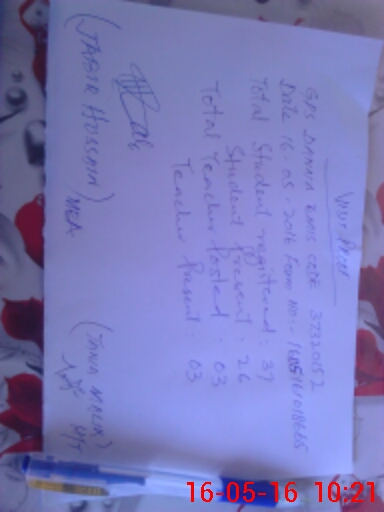 Visit Proof
GPS DHAMIA EMIS CODE 37320152
Date 16-05-2016 Form No:-
Total Student registered: 37
Student Present: 26
Total Teacher Posted: 03
Teacher Present: 03
(JABIR HUSSAIN)
MEA
16-05-16 10:21